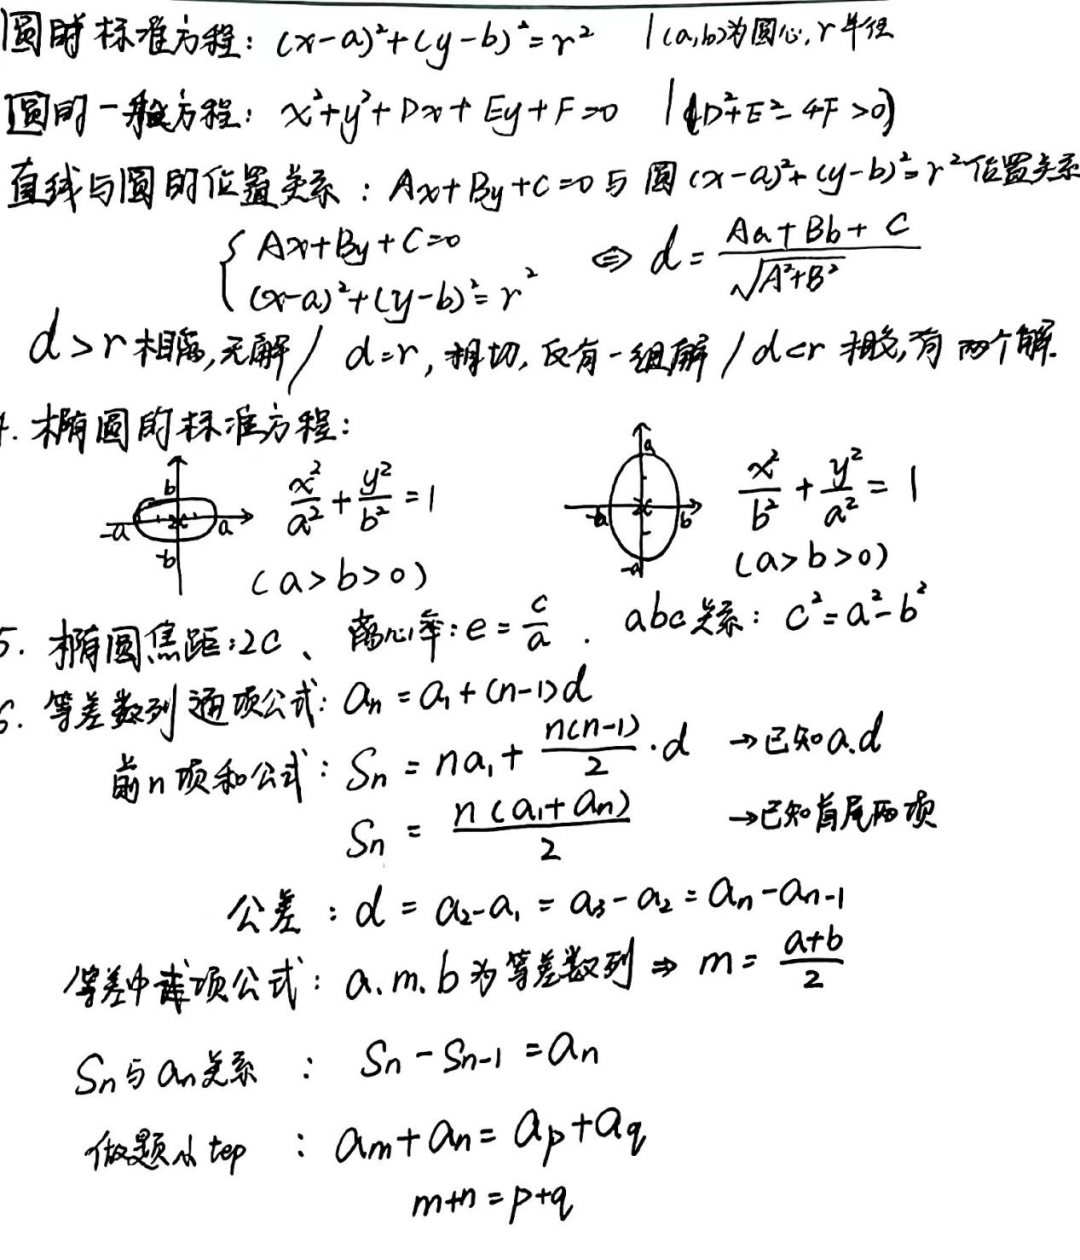 圆的标准方程：(x-a)²+(y-b)²=r² |(a,b)为圆心,r半径
圆的一般方程：x²+y²+Dx+Ey+F=0 |(D²+E²-4F>0)
直线与圆的位置关系：Ax+By+C=0与圆(x-a)²+(y-b)²=r²位置关系
{Ax+By+C=0
(x-a)²+(y-b)²=r² ⇔ d=\frac{Aa+Bb+C}{\sqrt{A²+B²}}
d>r相离,无解/ d=r,相切,仅有一组解/d<r 相交,有两个解.
4. 椭圆的标准方程：
b -a 2c a -b \frac{x²}{a²}+\frac{y²}{b²}=1 a -b 2c b -a \frac{x²}{b²}+\frac{y²}{a²}=1
(a>b>0) (a>b>0)
5. 椭圆焦距:2C、离心率:e=\frac{c}{a}. abc关系：c²=a²-b²
6. 等差数列通项公式:an=a₁+(n-1)d
前n项和公式:Sn=na₁+\frac{n(n-1)}{2}·d →已知a.d
Sn=\frac{n(a₁+an)}{2} →已知首尾两项
公差：d=a₂-a₁=a₃-a₂=an-an-1
等差中项公式：a.m.b为等差数列⇒m=\frac{a+b}{2}
Sn与an关系：Sn-Sn-1=an
做题小tep：am+an=ap+aq
m+n=p+q